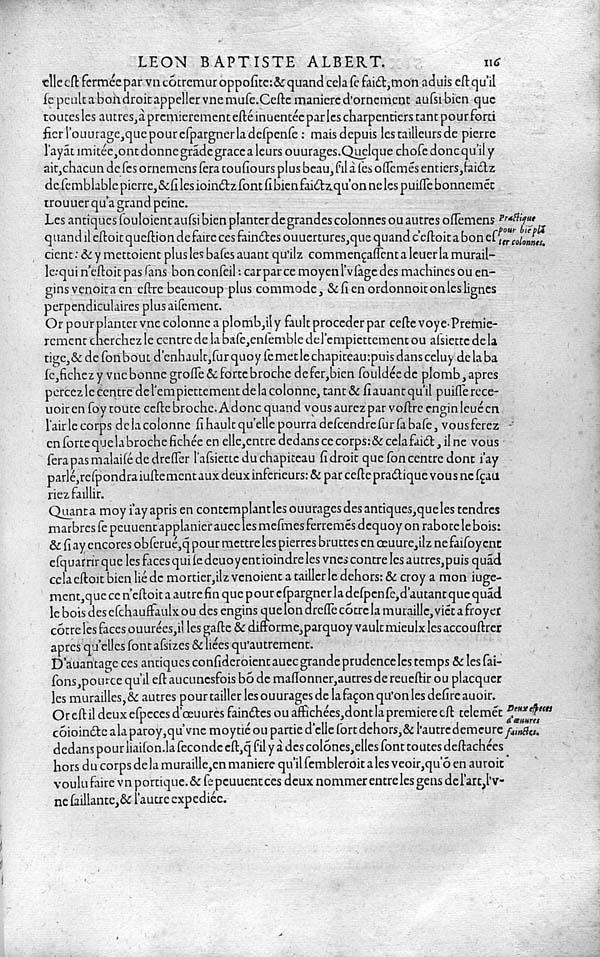 LEON BAPTISTE ALBERT. 116
elle est fermée par vn cõtremur opposite: & quand cela se faict, mon aduis est qu'il
se peult a bon droit appeller vne muse. Ceste maniere d'ornement aussi bien que
toutes les autres, à premierement esté inuentée par les charpentiers tant pour forti
fier l'ouurage, que pour espargner la despense : mais depuis les tailleurs de pierre
l'ayãt imitée, ont donne grãde grace a leurs ouurages. Quelque chose donc qu'il y
ait, chacun de ses ornemens sera tousiours plus beau, s'il à ses ossemẽs entiers, faictz
de semblable pierre, & si les ioinctz sont si bien faictz, qu'on ne les puisse bonnemẽt
trouuer qu'a grand peine.
Les antiques souloient aussi bien planter de grandes colonnes ou autres ossemens
Practique
pour biẽ plã
ter colonnes.
quand il estoit question de faire ces fainctes ouuertures, que quand c'estoit a bon es
cient: & y mettoient plus les bases auant qu'ilz commençassent a leuer la murail-
le: qui n'estoit pas sans bon conseil: car par ce moyen l'vsage des machines ou en-
gins venoit a en estre beaucoup plus commode, & si en ordonnoit on les lignes
perpendiculaires plus aisement.
Or pour planter vne colonne a plomb, il y fault proceder par ceste voye. Premie-
rement cherchez le centre de la base, ensemble de l'empiettement ou assiette de la
tige, & de son bout d'enhault, sur quoy se met le chapiteau: puis dans celuy de la ba
se, fichez y vne bonne grosse & forte broche de fer, bien souldée de plomb, apres
percez le centre de l'empiettement de la colonne, tant & si auant qu'il puisse rece-
uoir en soy toute ceste broche. A donc quand vous aurez par vostre engin leué en
l'air le corps de la colonne si hault qu'elle pourra descendre sur sa base, vous ferez
en sorte que la broche fichée en elle, entre dedans ce corps: & cela faict, il ne vous
sera pas malaisé de dresser l'assiette du chapiteau si droit que son centre dont i'ay
parlé, respondra iustement aux deux inferieurs: & par ceste practique vous ne sçau
riez faillir.
Quant a moy i'ay apris en contemplant les ouurages des antiques, que les tendres
marbres se peuuent applanier auec les mesmes ferremẽs dequoy on rabote le bois:
& si ay encores obserué, q̃ pour mettre les pierres bruttes en œuure, ilz ne faisoyent
esquarrir que les faces qui se deuoyent ioindre les vnes contre les autres, puis quãd
cela estoit bien lié de mortier, ilz venoient a tailler le dehors: & croy a mon iuge-
ment, que ce n'estoit a autre fin que pour espargner la despense, d'autant que quãd
le bois des eschauffaulx ou des engins que lon dresse cõtre la muraille, viẽt a froyer
cõtre les faces ouurées, il les gaste & difforme, parquoy vault mieulx les accoustrer
apres qu'elles sont assizes & liées qu'autrement.
D'auantage ces antiques consideroient auec grande prudence les temps & les sai-
sons, pource qu'il est aucunesfois bõ de massonner, autres de reuestir ou placquer
les murailles, & autres pour tailler les ouurages de la façon qu'on les desire auoir.
Or est il deux especes d'œuures fainctes ou affichées, dont la premiere est telemẽt
Deux especes
d'œuures
fainctes.
cõioincte a la paroy, qu'vne moytié ou partie d'elle sort dehors, & l'autre demeure
dedans pour liaison. la seconde est, q̃ s'il y à des colõnes, elles sont toutes destachées
hors du corps de la muraille, en maniere qu'il sembleroit a les veoir, qu'õ en auroit
voulu faire vn portique. & se peuuent ces deux nommer entre les gens de l'art, l'v-
ne saillante, & l'autre expediée.